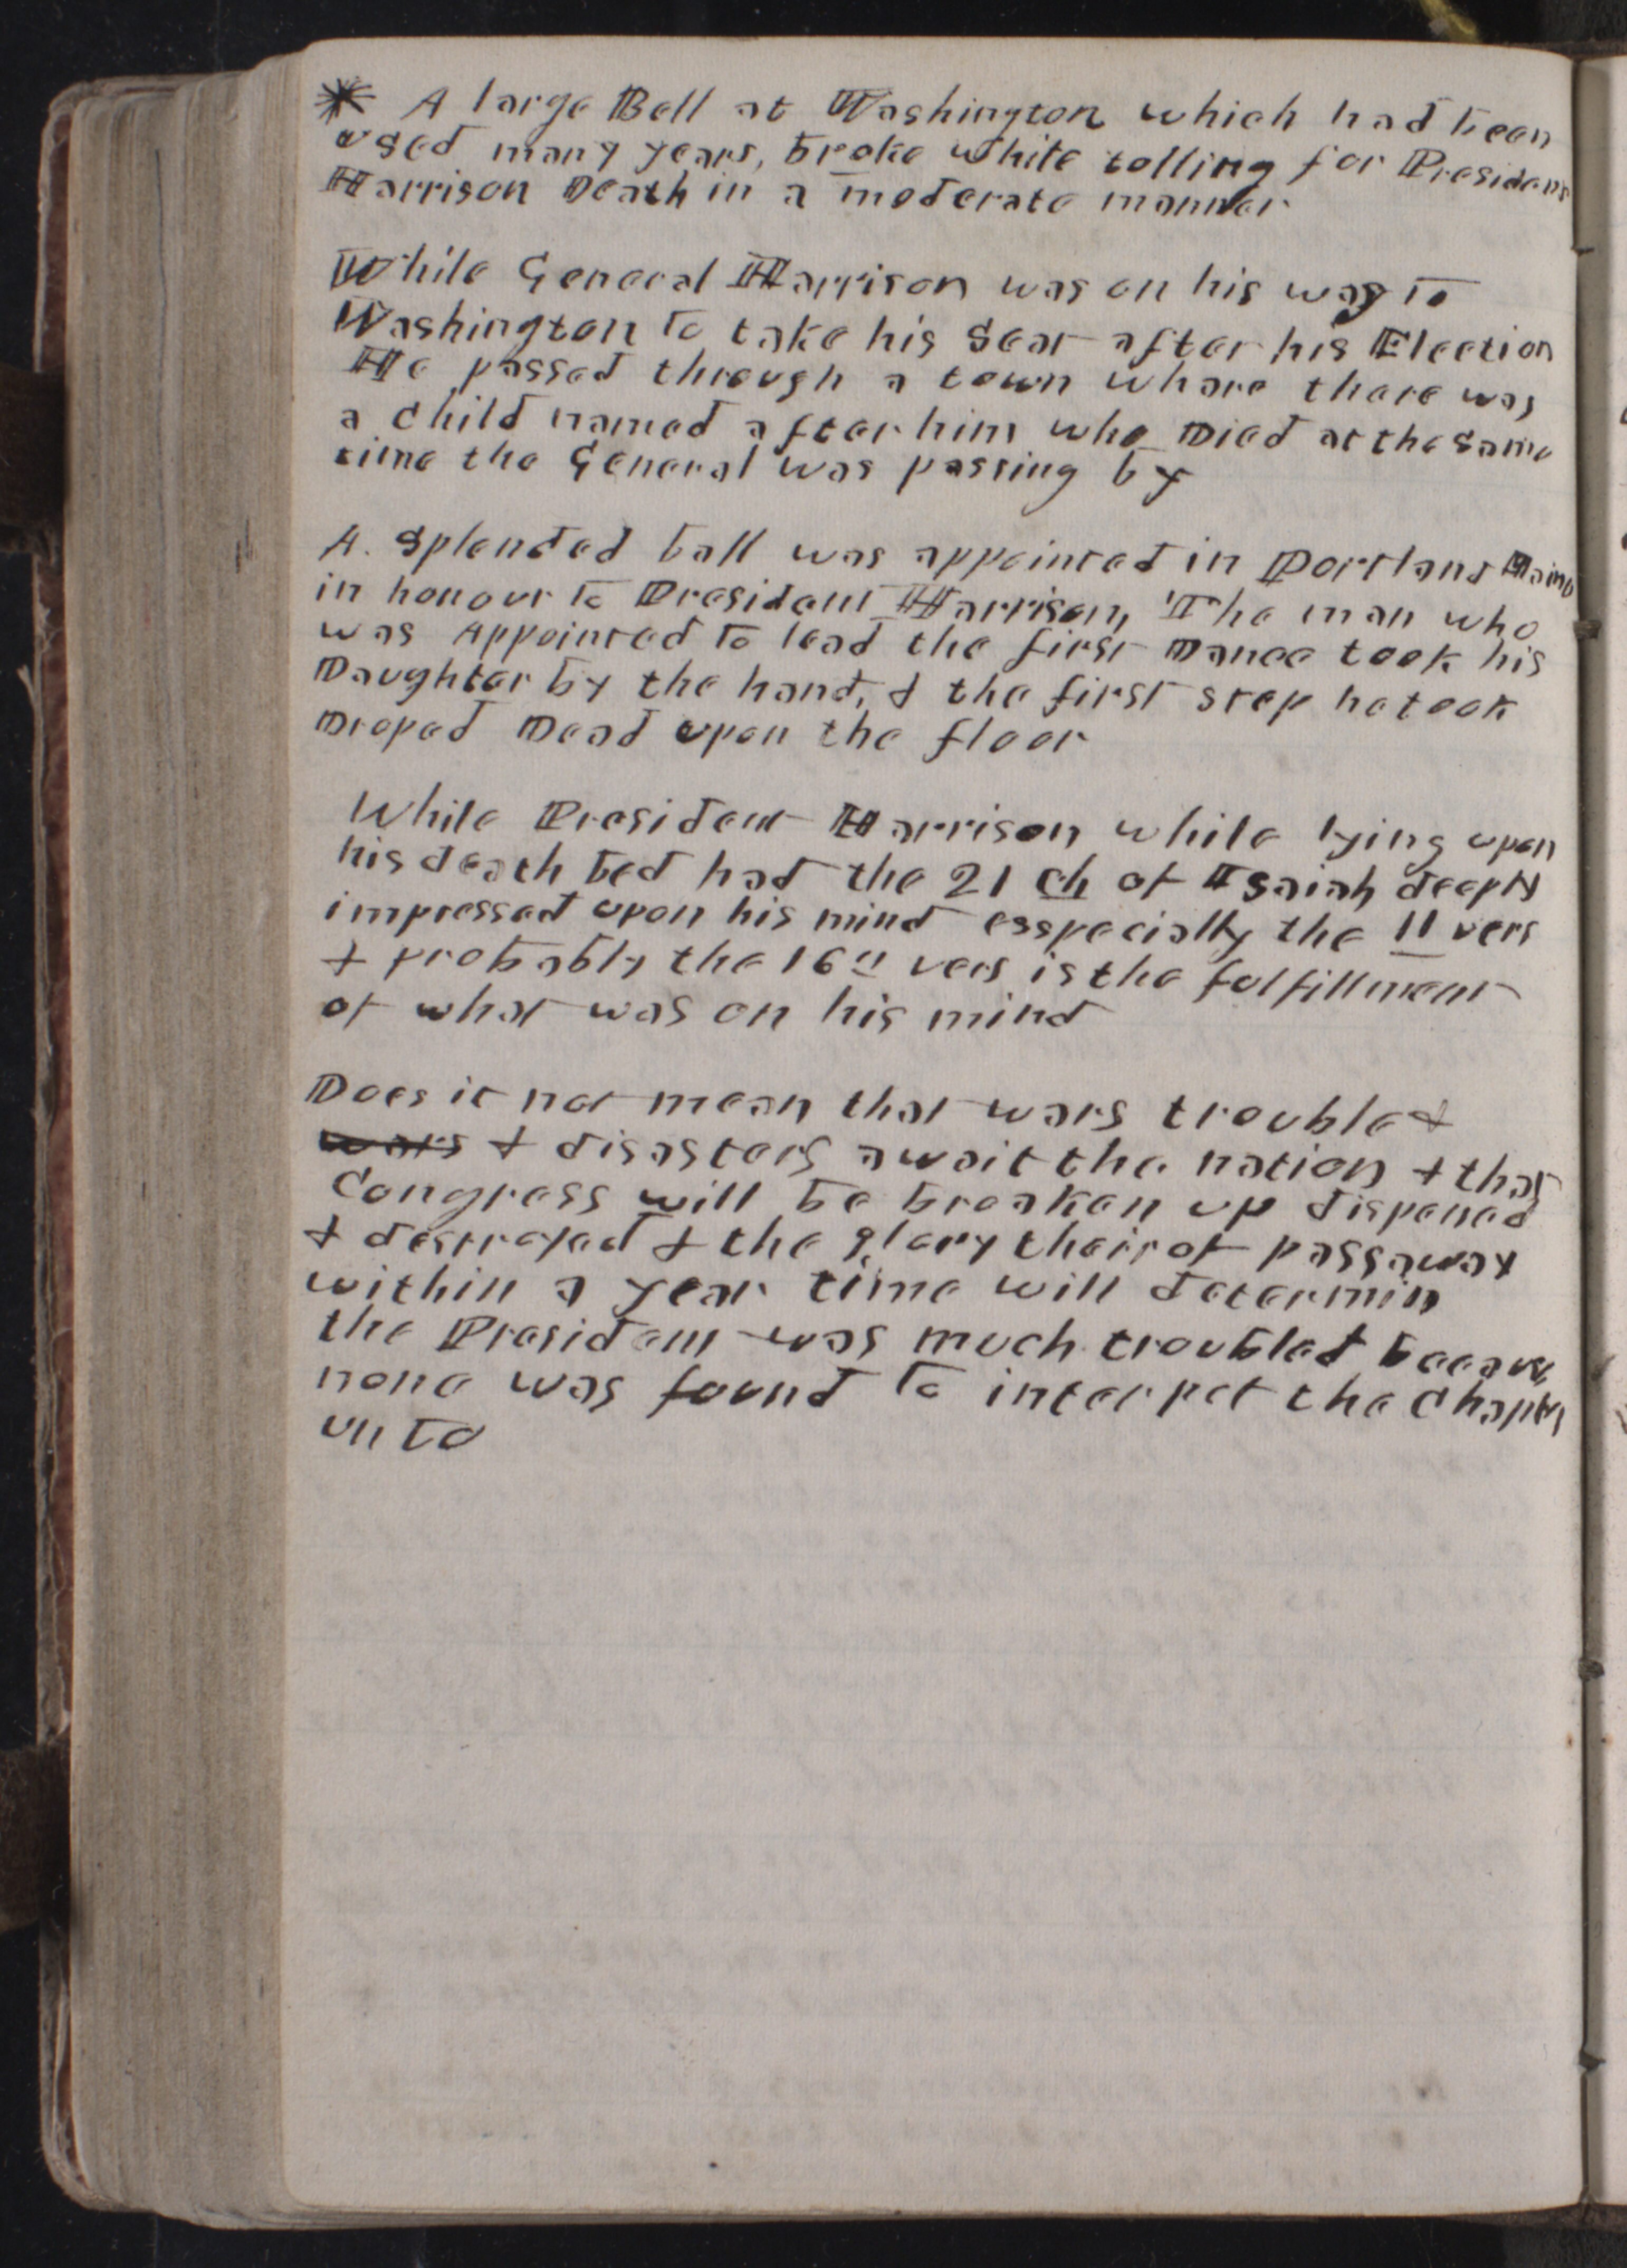 * A large Bell at Washington which had been
used many years, broke while tolling for President
Harrison Death in a moderate manner
While General Harrison was on his way to
Washington to take his Seat after his Election
He passed through a town whare thare was
a child named after him who Died at the same
time the General was passing by
A. Splended ball was appointed in Portland Maine
in honour to President Harrison, The man who
was Appointed to lead the first Dance took his
Daughter by the hand, & the first step he took
Droped Dead upon the floor
While President Harrison while lying upon
his death bed had the 21 ch of Isaiah deeply
impressed upon his mind esspecially the 11 vers
& probably the 16" vers is the fulfillment
of what was on his mind
Does it not mean that wars trouble &
wars & disasters await the nation & that
Congress will be breaken up dispened
& destroyed & the glory thairof passaway
within a year time will determin
the President was much troubled becaus
none was found to interpet the chapter
unto